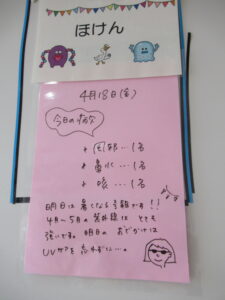 ほけん
4月18日(金)
今日の病欠
風邪…1名
鼻水…1名
咳…1名
明日は暑くなる予報です!!
4月〜5月の紫外線はとても
強いです。明日のおでかけは
UVケアを忘れずに…。